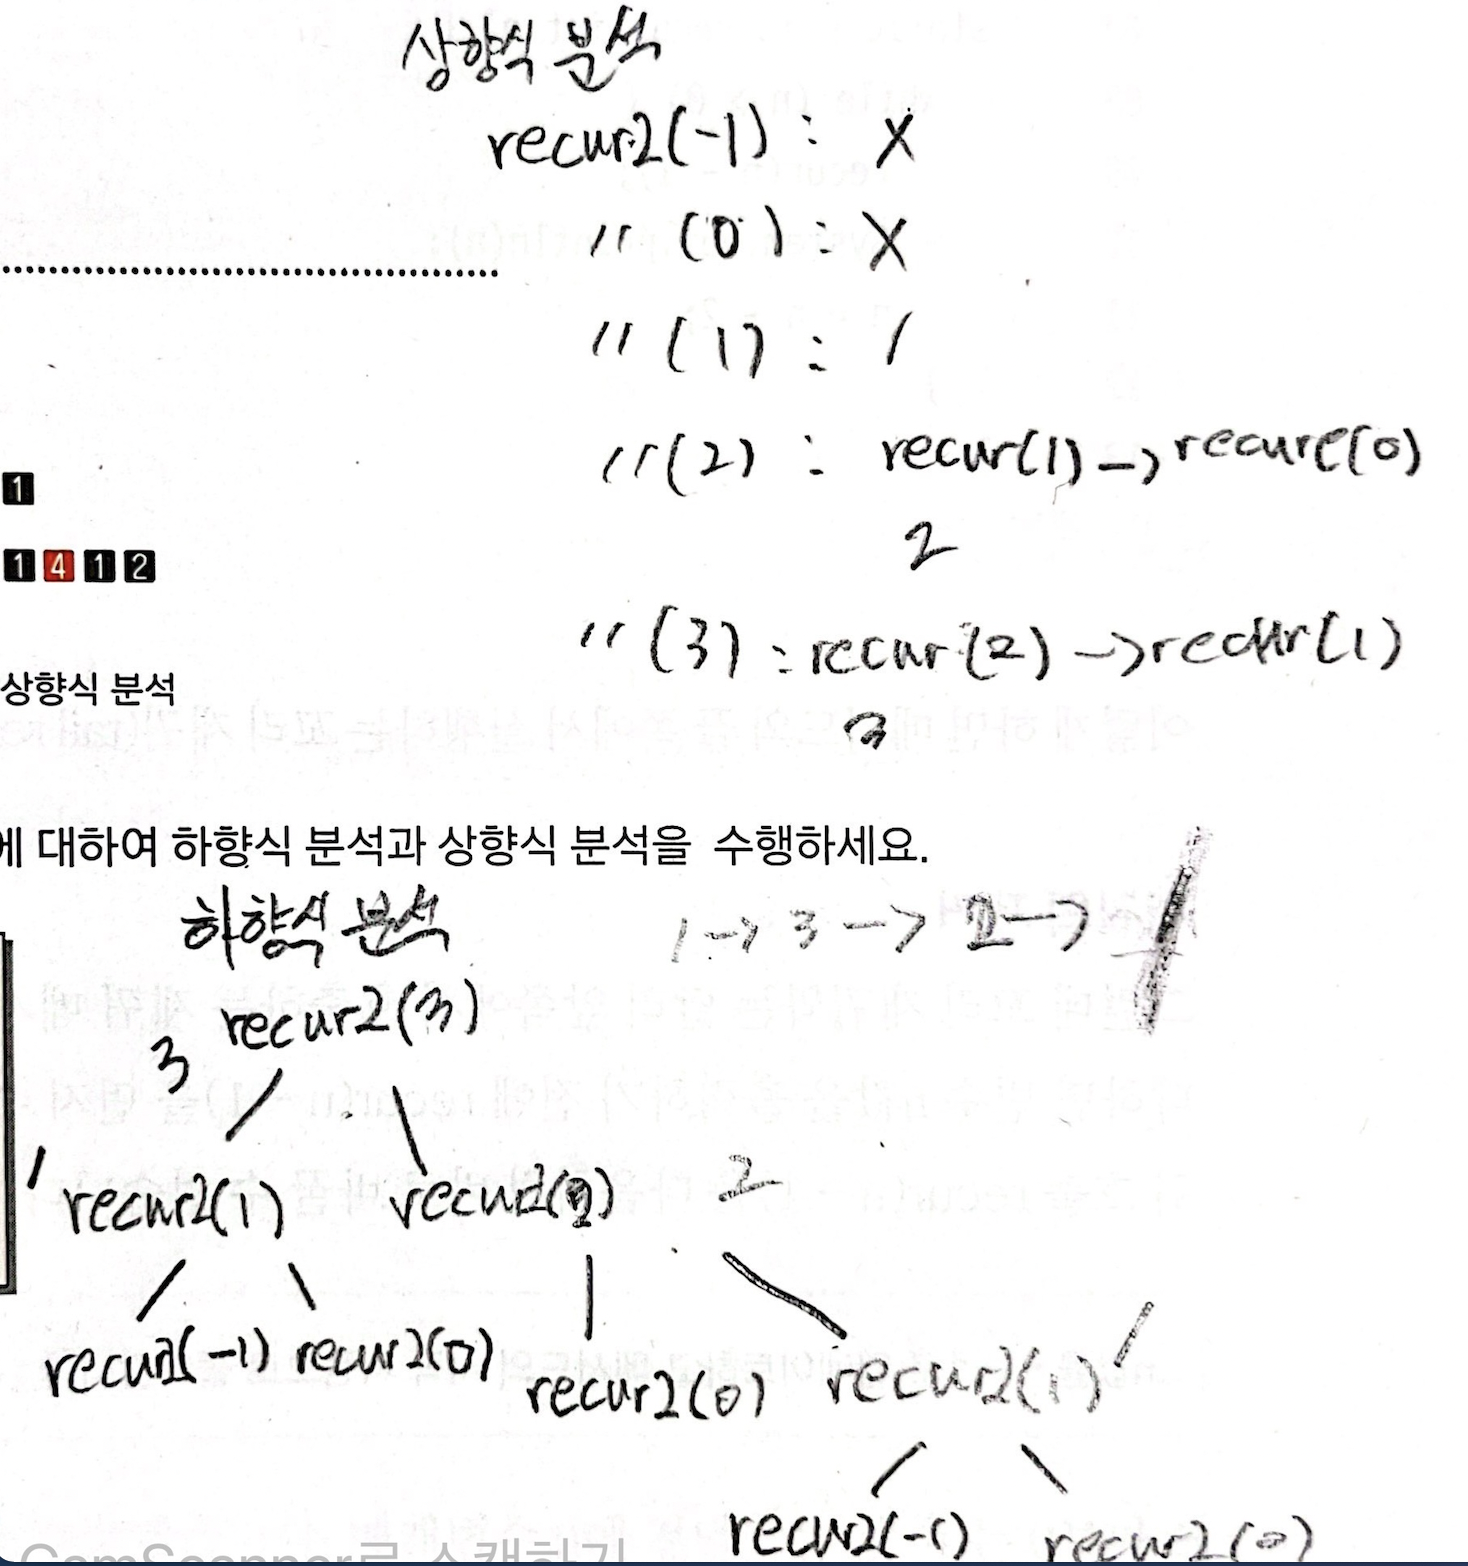 상향식 분석
recur2(-1) : X
〃 (0) : X
〃 (1) : 1
1
〃 (2) : recur(1) -> recure(0)
2
1 4 1 2
〃 (3) : recur(2) -> recur(1)
상향식 분석
3
에 대하여 하향식 분석과 상향식 분석을 수행하세요.
하향식 분석
1 -> 3 -> 2 -> 1
recur2(3)
3
1 recur2(1) recur2(2) 2
recur2(-1) recur2(0) recur2(0) recur2(1) 1
recur2(-1) recur2(0)
CamScanner로 스캔하기